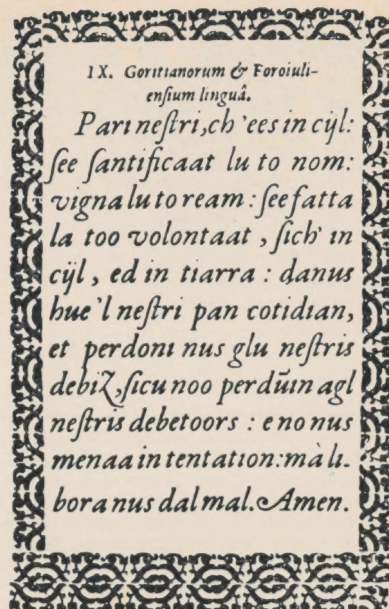 IX. Goritianorum & Foroiuli-
enſium linguâ.
Pari neſtri, ch'ees in cÿl:
ſee ſantificaat lu to nom:
vigna lu to ream: ſee fatta
la too volontaat, ſich' in
cÿl, ed in tiarra: danus
hue 'l neſtri pan cotidian,
et perdoni nus glu neſtris
debiZ, ſicu noo perdūin agl
neſtris debetoors: e no nus
menaa in tentation: mà li-
bora nus dal mal. Amen.